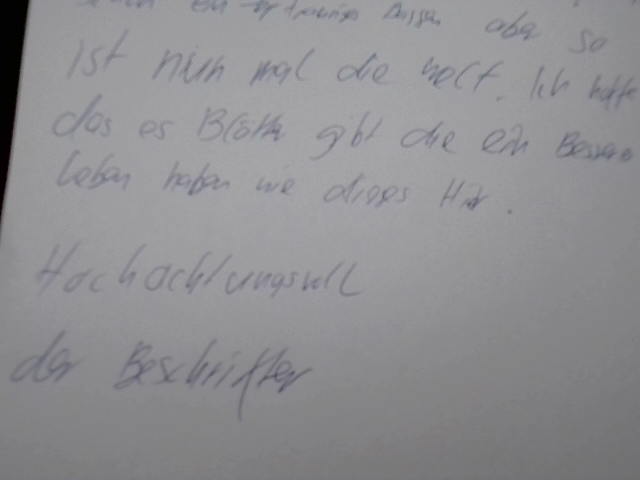 ein trauriges Dassein aber so
ist nun mal die welt. Ich hoffe
das es Blätter gibt die ein Besseres
Leben haben wie dieses Hir.
Hochachtungsvoll
der Beschrifter